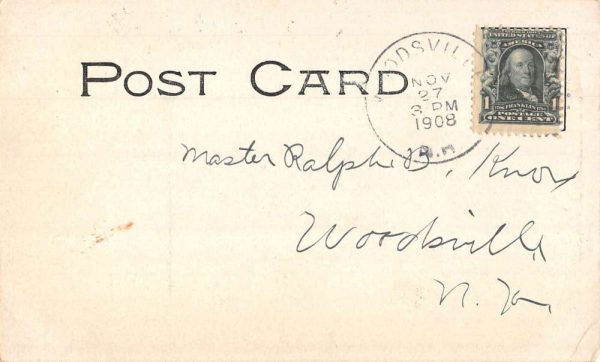 POST CARD
WOODSVILLE
NOV
27
3 PM
1908
N.H
UNITED STATES OF AMERICA
1 FRANKLIN 1
POSTAGE
ONE CENT
Master Ralph B. Knox
Woodsville,
N. H.